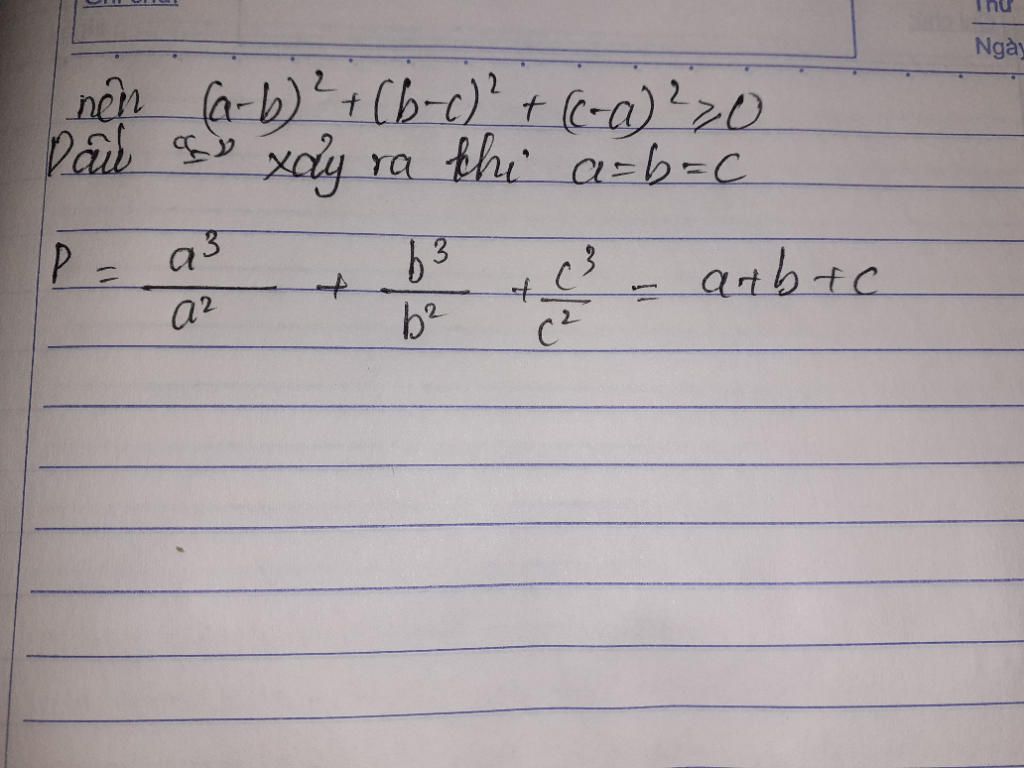 Thứ
Ngày
nên (a-b)² + (b-c)² + (c-a)² ≥ 0
Dấu "=" xảy ra khi a=b=c
P = a³/a² + b³/b² + c³/c² = a+b+c